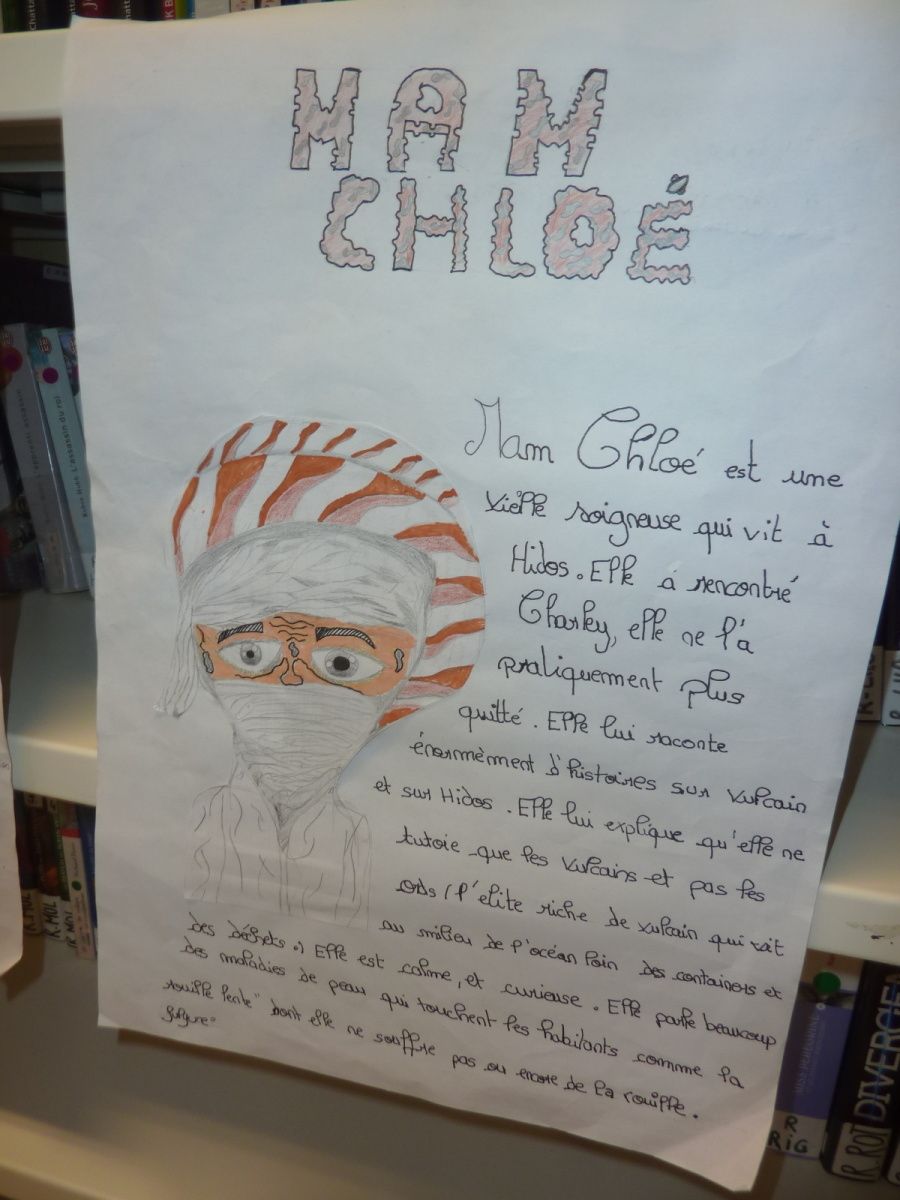 MAM
CHLOÉ
Mam Chloé est une
vieille soigneuse qui vit à
Hidos. Elle a rencontré
Charley, elle ne l'a
pratiquement plus
quitté. Elle lui raconte
énormèment d'histoires sur Vulcain
et sur Hidos. Elle lui explique qu'elle ne
tutoie que les Vulcains et pas les
ords (l'élite riche de vulcain qui vait
au milieu de l'océan loin des containers et
des déchets.) Elle est calme, et curieuse. Elle parle beaucoup
des maladies de peau qui touchent les habitants comme la
"rouille lente" dont elle ne souffre pas ou encore de la rouille.
L'assassin du roi
R
RIG
R.ROT
DIVERGE
R.MOL
R.MOL